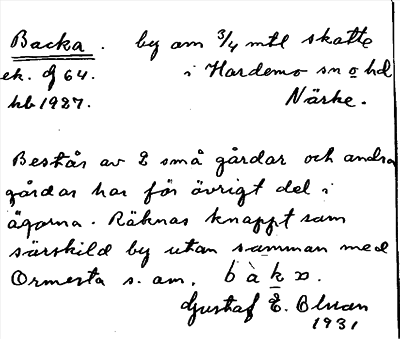 Backa. by om 3/4 mtl skatte
ek. g 64. i Hardemo sn o hd
hb 1927. Närke.
Består av 2 små gårdar och andra
gårdar har för övrigt del i
ägorna. Räknas knappt som
särskild by utan samman med
Ormesta s. om. bàkx.
Gustaf E. Olsson
1931